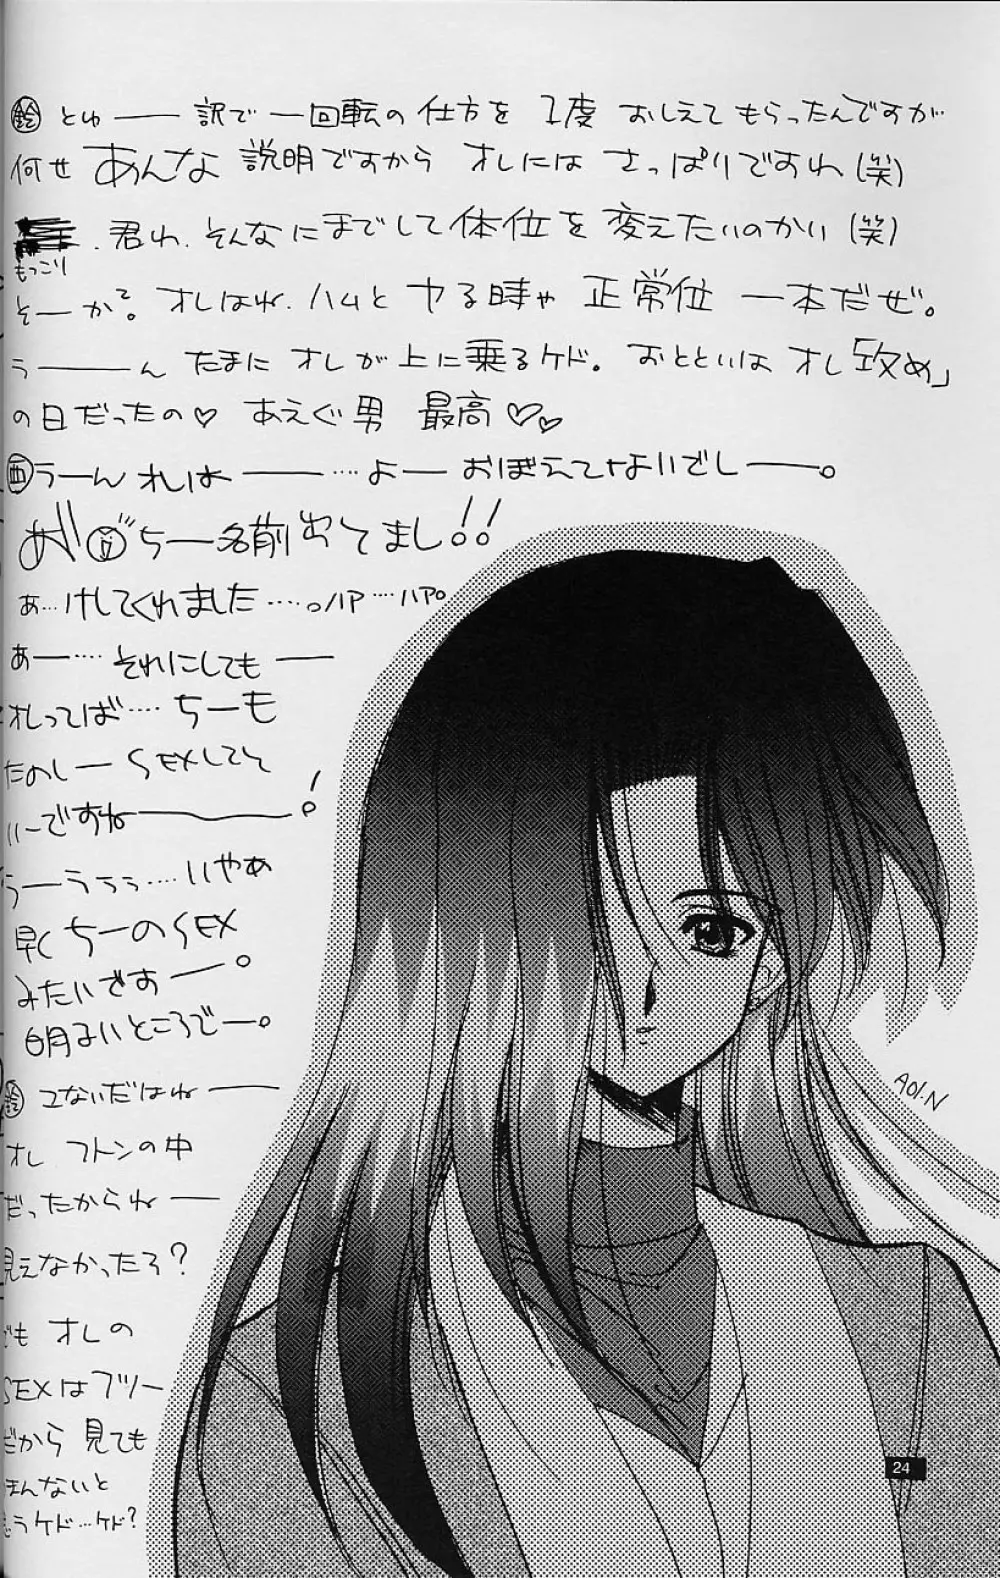 鈴 とゆ―― 訳で 一回転の 仕方を 1度 おしえて もらったんですが…
何せ あんな 説明ですから オレには さっぱりですわ(笑)
. 君わ. そんなにまでして 体位を 変えたいのかい(笑)
もっこり
そーか? オレはね. ハムと ヤる時ゃ 正常位 一本だぜ。
う―――ん たまに オレが 上に乗るケド。 おとといは オレ「攻め」
の日だったの♡ あえぐ男 最高♡♡
西 うーん オレは―――‥‥よ―― おぼえてないでし――。
ちー名前出てまし!!
あ…けしてくれました‥‥。ハア‥‥ハア。
あー‥‥ それにしても ―
オレってば‥‥ ちーも
たのしー SEXしてそ
いーですね―――――!
うーううぅ‥‥いやぁ
早く ちーのSEX
みたいですぉ――。
明よいところでー。
鈴 こないだはね――
オレ フトンの中
だったからね ――
見えなかったろ?
でも オレの
SEXはフツー
だから 見ても
ほんないと
もうケド…ケド?
AOI.N
24